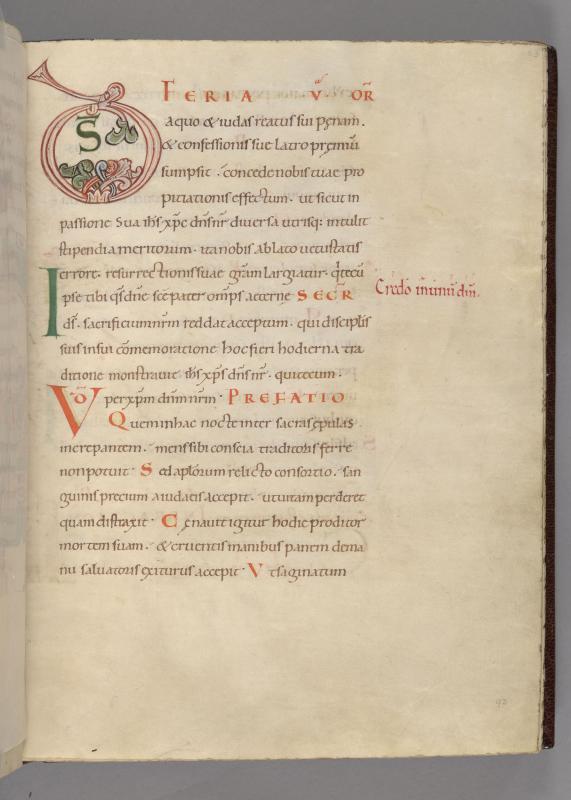 FERIA V. OR̄
DS̄ A
A quo & iudas reatus sui pęnam.
& confessionis suę latro pręmiū
sumpsit. concede nobis tuae pro
pitiationis effectum. ut sicut in
passione sua ihs xp̄c dn̄s nr̄ diuersa utrisq; intulit
stipendia meritorum. ita nobis ablato uetustatis
errore. resurrectionis suae grām largiatur. q̄ tecū
Ipse tibi qs̄ dn̄e sc̄e pater omp̄s aeterne SECR̄
ds̄. sacrificium nr̄m reddat acceptum. qui discipłis
Credo in unū dm̄.
suis in sui cōmemoratione hoc fieri hodierna tra
ditione monstrauit ihs xp̄s dn̄s nr̄. qui tecum.
VD̄ per xp̄m dn̄m nr̄m. PREFATIO
Quem in hac nocte inter sacras epulas
increpantem. mens sibi conscia traditoris ferre
non potuit. Sed apłorum relicto consortio. san
guinis precium a iudaeis accepit. ut uitam perderet
quam distraxit. Cęnauit igitur hodie proditor
mortem suam. & cruentis manibus panem de ma
nu saluatoris exiturus accepit. Ut saginatum